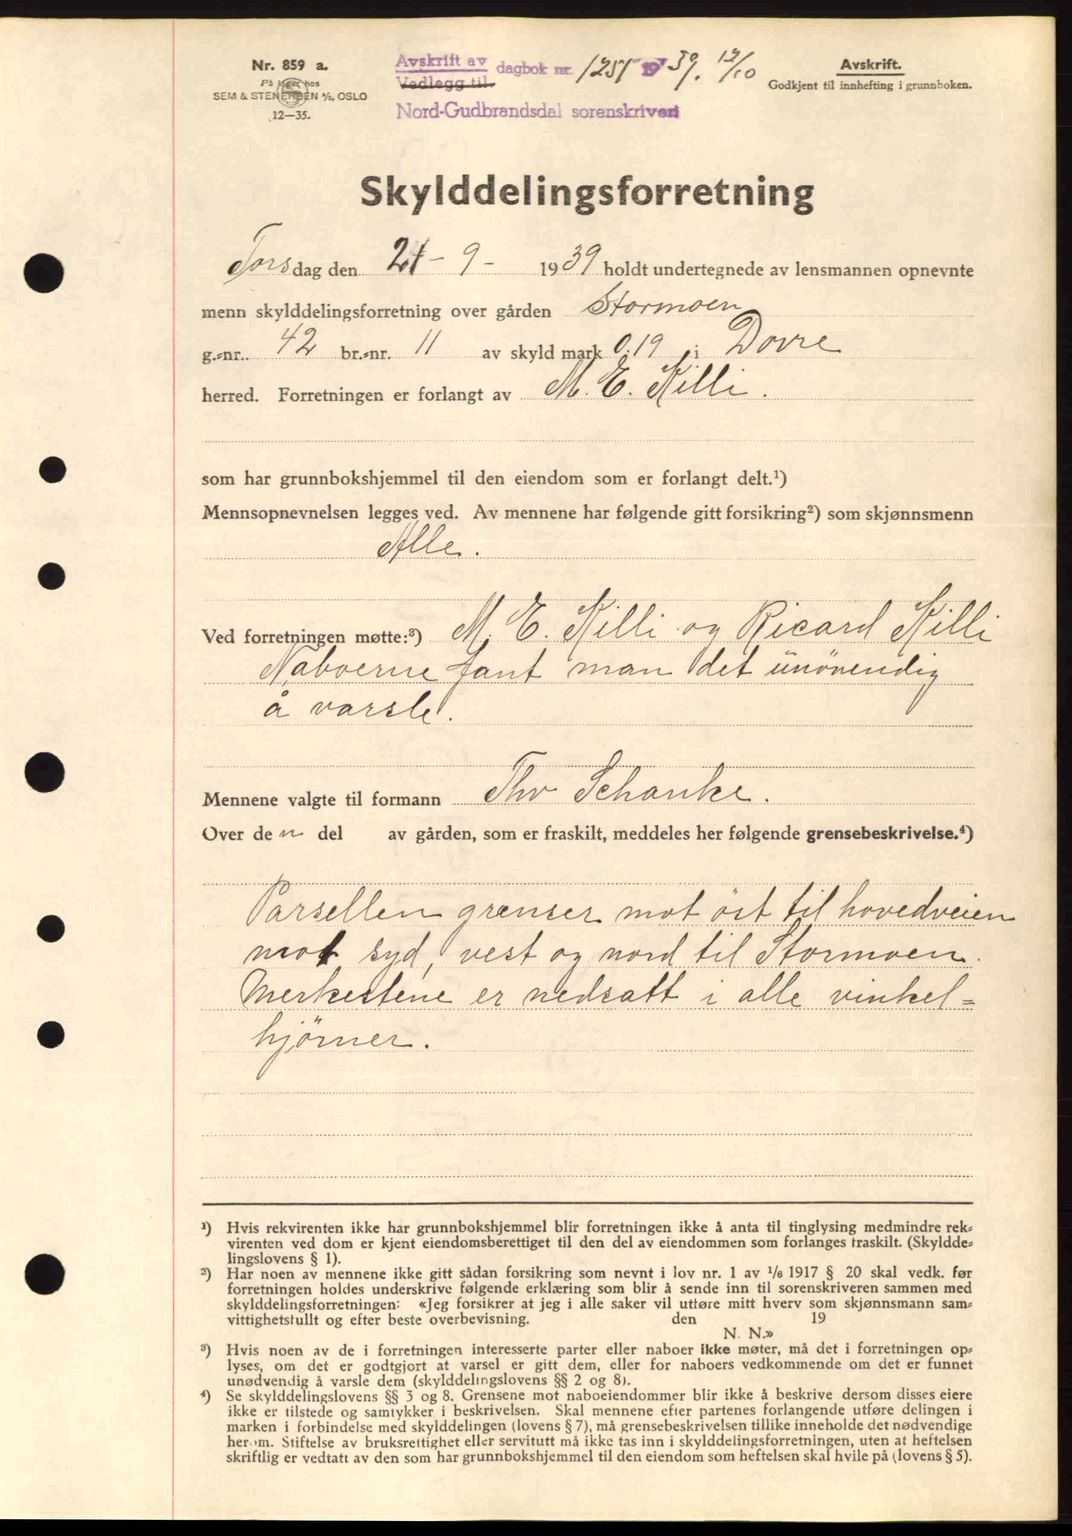 Nr. 859 a.
På lager hos
SEM & STENERSEN A/S, OSLO
12—35.
Avskrift av
Vedlegg til
dagbok nr. 1251 1939. 12/10
Nord-Gudbrandsdal sorenskriveri
Avskrift.
Godkjent til innhefting i grunnboken.
Skylddelingsforretning
Torsdag den 21 - 9 - 1939 holdt undertegnede av lensmannen opnevnte
menn skylddelingsforretning over gården Stormoen
g.=nr. 42 br.=nr. 11 av skyld mark 0.19 i Dovre
herred. Forretningen er forlangt av M. E. Killi.
som har grunnbokshjemmel til den eiendom som er forlangt delt.¹)
Mennsopnevnelsen legges ved. Av mennene har følgende gitt forsikring²) som skjønnsmenn
Alle.
Ved forretningen møtte:³) M. E. Killi og Ricard Killi
Naboerne fant man det unövendig
å varsle.
Mennene valgte til formann Thv Schanke.
Over den del av gården, som er fraskilt, meddeles her følgende grensebeskrivelse.⁴)
Parsellen grenser mot öst til hovedveien
mot syd, vest og nord til Stormoen.
Merkestene er nedsatt i alle vinkel=
hjörner.
¹) Hvis rekvirenten ikke har grunnbokshjemmel blir forretningen ikke å anta til tinglysing medmindre rek=
virenten ved dom er kjent eiendomsberettiget til den del av eiendommen som forlanges fraskilt. (Skyldde=
lingslovens § 1).
²) Har noen av mennene ikke gitt sådan forsikring som nevnt i lov nr. 1 av 1/6 1917 § 20 skal vedk. før
forretningen holdes underskrive følgende erklæring som blir å sende inn til sorenskriveren sammen med
skylddelingsforretningen: «Jeg forsikrer at jeg i alle saker vil utføre mitt hverv som skjønnsmann sam=
vittighetsfullt og efter beste overbevisning. den 19
N. N.»
³) Hvis noen av de i forretningen interesserte parter eller naboer ikke møter, må det i forretningen op=
lyses, om det er godtgjort at varsel er gitt dem, eller for naboers vedkommende om det er funnet
unødvendig å varsle dem (skylddelingslovens §§ 2 og 8).
⁴) Se skylddelingslovens §§ 3 og 8. Grensene mot naboeiendommer blir ikke å beskrive dersom disses eiere
ikke er tilstede og samtykker i beskrivelsen. Skal mennene efter partenes forlangende utføre delingen i
marken i forbindelse med skylddelingen (lovens § 7), må grensebeskrivelsen tillike inneholde det nødvendige
herom. Stiftelse av bruksrettighet eller servitutt må ikke tas inn i skylddelingsforretningen, uten at heftelsen
skriftlig er vedtatt av den som har grunnbokshjemmel til den eiendom som heftelsen skal hvile på (lovens § 5).